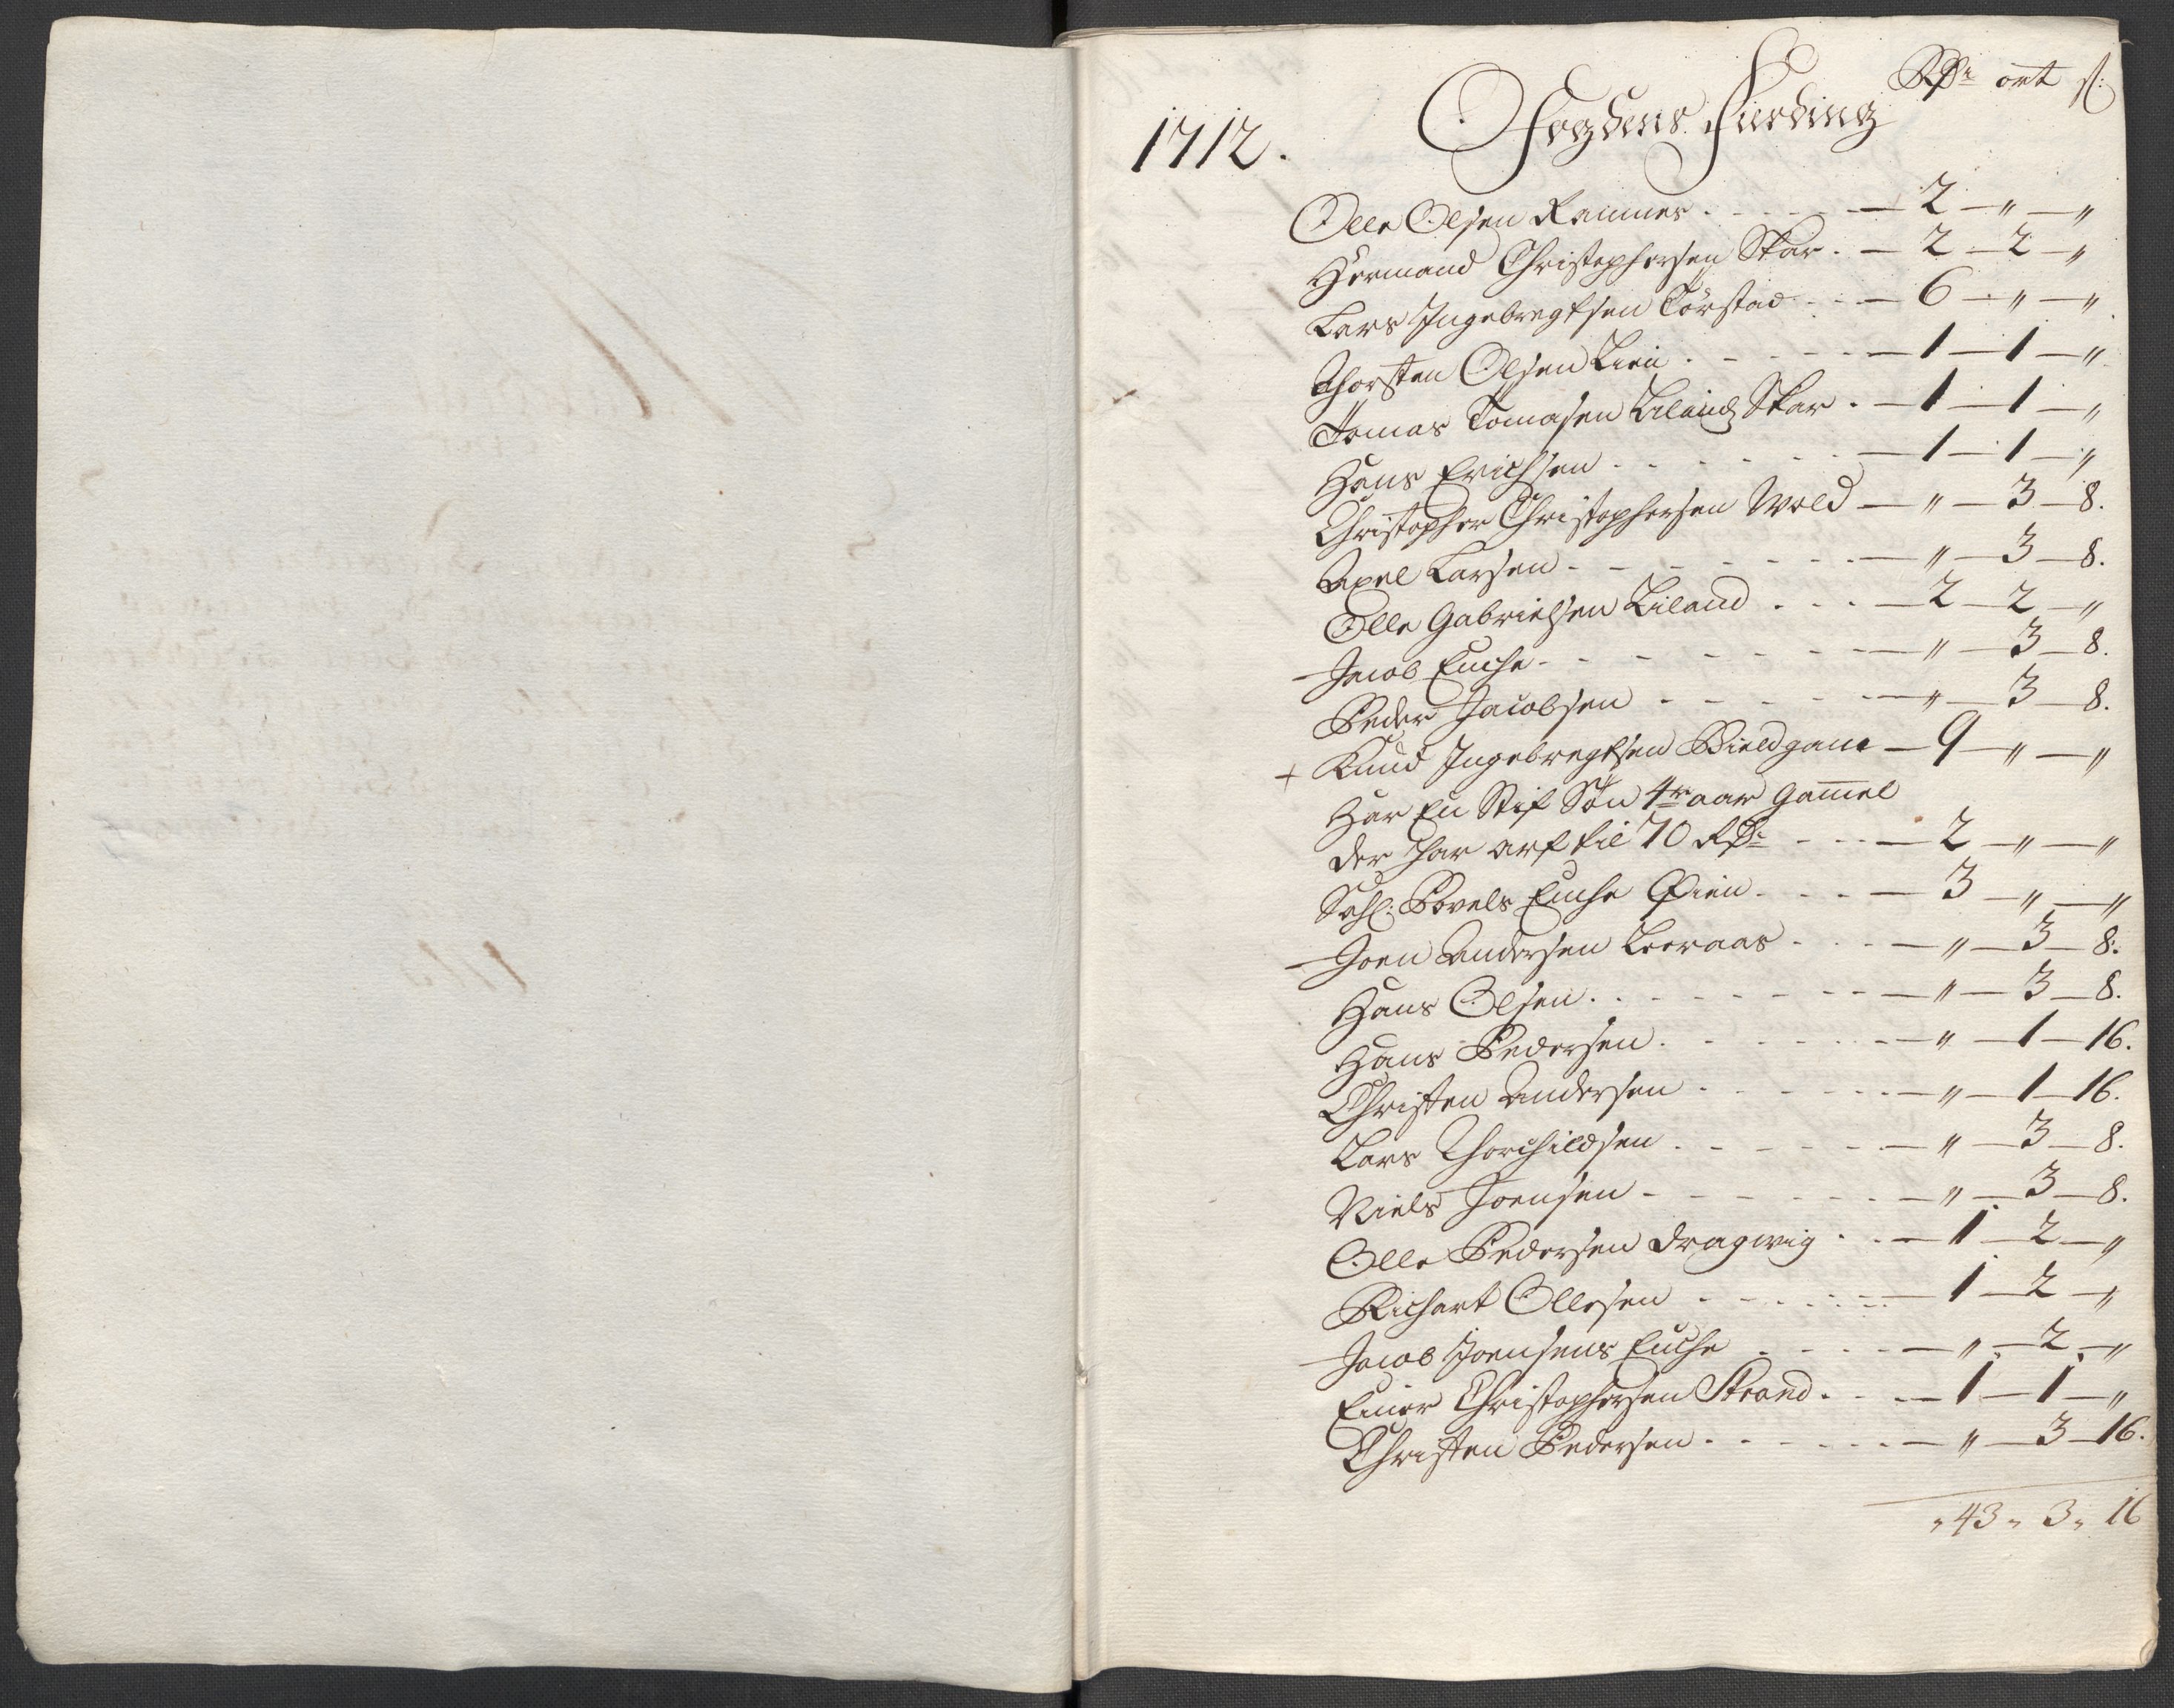 1712. Fogdens Fierding Rdr ort s:
Olle Olsen Ramnes . . . — 2 — " — "
Hermand Christophersen Skar . — 2 — 2 — "
Lars Ingebregtsen Törstad . . — 6 — " — "
Thorsten Olsen Lien . . . . — 1 — 1 — "
Tomas Tomasen Liland Skar . — 1 — 1 — "
Hans Erichsen . . . . . — 1 — 1 — "
Christopher Christophersen Wold — " — 3 — 8.
Axel Larsen . . . . . — " — 3 — 8.
Olle Gabrielsen Liland . . . — 2 — 2 — "
Jacob Enche . . . . . — " — 3 — 8.
Peder Jacobsen . . . . . — " — 3 — 8.
+ Knud Ingebregtsen Bieldgam — 9 — " — "
Har En Stif Søn 4re aar gammel
der har arf til 70 Rdr . . . — 2 — " — "
Sahl: Povels Enche Øien . . . — 3 — " — "
Joen Andersen Leeraas . . . — " — 3 — 8.
Hans Olsen . . . . . — " — 3 — 8.
Hans Pedersen . . . . . — " — 1 — 16.
Christen Andersen . . . . — " — 1 — 16.
Lars Thorchildsen . . . . — " — 3 — 8.
Niels Joensen . . . . . — " — 3 — 8.
Olle Pedersen Dragwig . . — 1 — 2 — "
Richart Ollesen . . . . . — 1 — 2 — "
Jacob Joensens Enche . . . — " — 2 — "
Einer Christophersen Strand . . — 1 — 1 — "
Christen Pedersen . . . . . — " — 3 — 16.
" 43 " 3 " 16